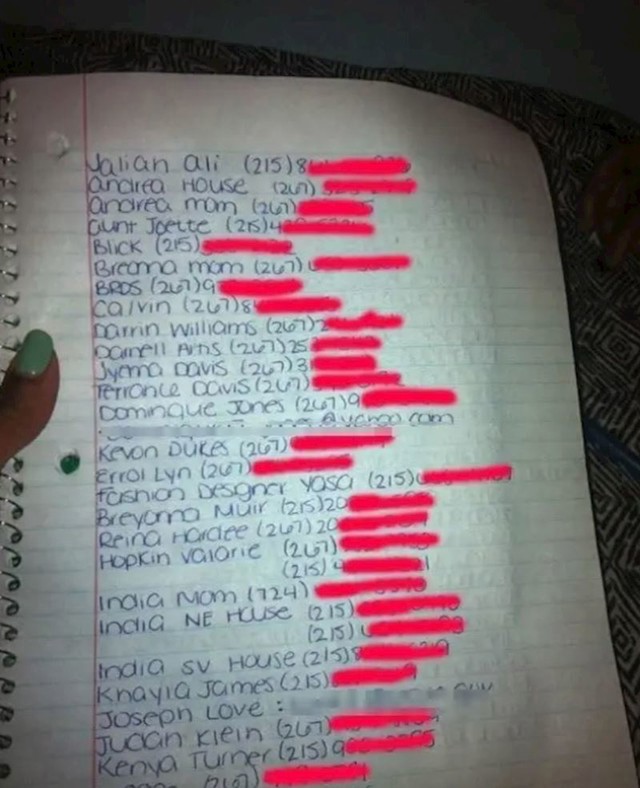 Jalian Ali (215)8
Andrea House (267)
Andrea mom (267)
Aunt Joette (215)4
Blick (215)
Breanna mom (267)
BROS (267)9
Calvin (267)8
Darrin Williams (267)2
Darnell Artis (267)25
Jyema Davis (267)3
Terrance Davis (267)
Dominque Jones (267)9
@yahoo.com
Kevon Dukes (267)
Errol Lyn (267)
Fashion Designer Yasa (215)
Breyonna Muir (215)20
Reina Hardee (267)20
Hopkin Valorie (267)
(215)
India Mom (724)
India NE House (215)
(215)
India SV House (215)8
Khayla James (215)
Joseph Love :
Judan Klein (267)
Kenya Turner (215)9
(267)